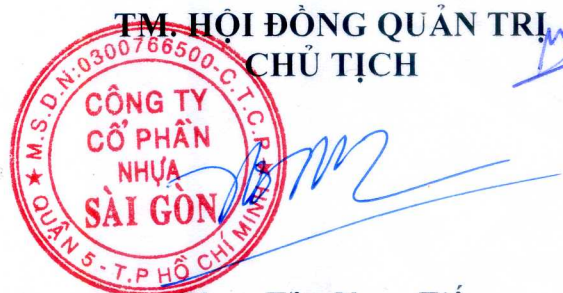 TM. HỘI ĐỒNG QUẢN TRỊ
CHỦ TỊCH
★ M.S.D.N:0300766500-C.T.C.P ★
CÔNG TY
CỔ PHẦN
NHỰA
SÀI GÒN
QUẬN 5 - T.P HỒ CHÍ MINH